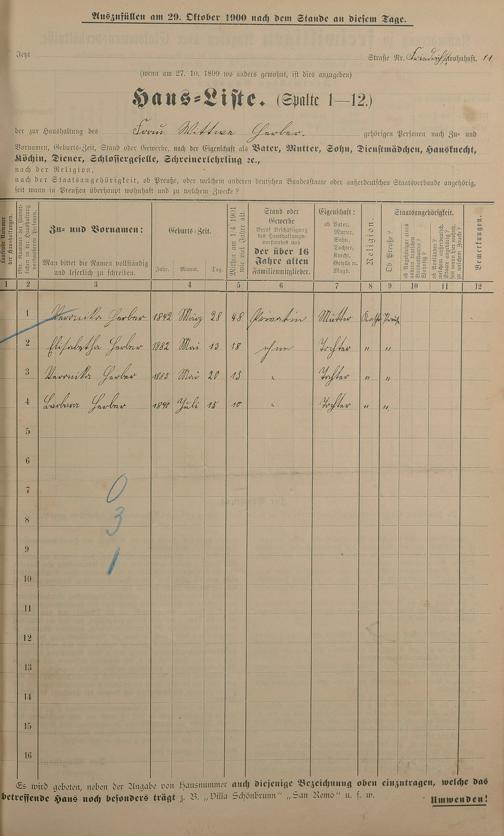 Auszufüllen am 29. Oktober 1900 nach dem Stande an diesem Tage.
Jetzt Straße Nr. wohnhaft. 11
(wenn am 27. 10. 1899 wo anders gewohnt, ist dies anzugeben)
Haus=Liste. (Spalte 1—12.)
der zur Haushaltung des Frau Wittwe Gerber. gehörigen Personen nach Zu- und
Vornamen, Geburts-Zeit, Stand oder Gewerbe, nach der Eigenschaft als Vater, Mutter, Sohn, Dienstmädchen, Hausknecht,
Köchin, Diener, Schlossergeselle, Schreinerlehrling ꝛc.,
nach der Religion,
nach der Staatsangehörigkeit, ob Preuße, oder welchem anderen deutschen Bundesstaate oder außerdeutschen Staatsverbande angehörig,
seit wann in Preußen überhaupt wohnhaft und zu welchem Zwecke?
Zu- und Vornamen:
Man bittet die Namen vollständig
und leserlich zu schreiben.
Geburts-Zeit.
Jahr. Monat. Tag.
Stand oder
Gewerbe
der über 16
Jahre alten
Familienmitglieder.
Eigenschaft:
ob Vater,
Mutter,
Sohn,
Tochter,
Knecht,
Geselle o.
Magd.
Religion
Staatsangehörigkeit.
Ob Preuße?
Bemerkungen.
1 2 3 4 5 6 7 8 9 10 11 12
1 Veronika Gerber 1842 März 28 48 Mutter
2 Elisabetha Gerber 1882 Mai 13 18 ohne Tochter „ „
3 Veronika Gerber 1885 Mai 20 15 „ Tochter „ „
4 Barbara Gerber 1890 Juli 15 10 „ Tochter „ „
5
6
7 0
8 3
9 1
10
11
12
13
14
15
16
Es wird gebeten, neben der Angabe von Hausnummer auch diejenige Bezeichnung oben einzutragen, welche das
betreffende Haus noch besonders trägt z. B. „Villa Schönbrunn" „San Remo" u. s. w.
Umwenden!